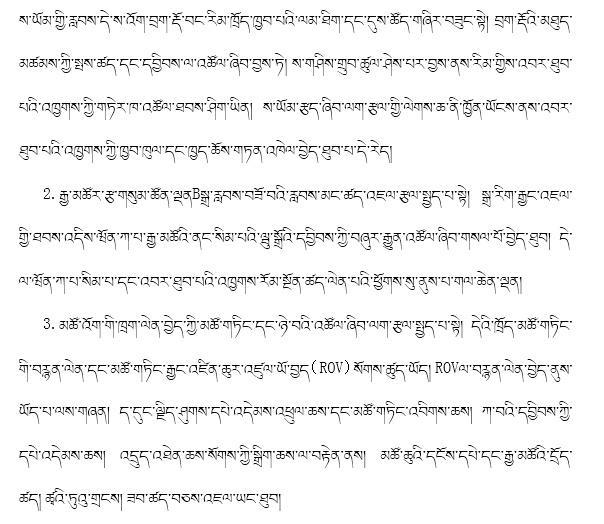 ས་ཡོམ་གྱི་རླབས་དེ་ས་འོག་བྲག་རྡོ་བང་རིམ་ཁྲོད་ཁྱབ་པའི་ལམ་ཐིག་དང་དུས་ཚོད་གཞིར་བཟུང་སྟེ། བྲག་རྡོའི་མཐུད་
མཚམས་ཀྱི་སྤས་ཚད་དང་དབྱིབས་ལ་འཚོལ་ཞིབ་བྱས་ཏེ། ས་གཤིས་གྲུབ་ཚུལ་ཤེས་པར་བྱས་ནས་རིམ་གྱིས་འབར་ཐུབ་
པའི་འཁྱགས་ཀྱི་གཏེར་ཁ་འཚོལ་ཐབས་ཤིག་ཡིན། ས་ཡོམ་རྩད་ཞིབ་ལག་རྩལ་གྱི་ལེགས་ཆ་ནི་ཁྱོན་ཡོངས་ནས་འབར་
ཐུབ་པའི་འཁྱགས་ཀྱི་ཁྱབ་ཁུལ་དང་ཁྱད་ཆོས་གཏན་འཁེལ་བྱེད་ཐུབ་པ་དེ་རེད།
2. རྒྱ་མཚོར་རྩ་གསུམ་ཚོན་ལྡནBསྒྲ་རླབས་བཟོ་བའི་རླབས་མང་ཚད་འཇལ་རྩལ་སྤྱད་པ་སྟེ། སྒྲ་རིག་རྒྱང་འཇལ་
གྱི་ཐབས་འདིས་ཝོན་ཀ་པ་རྒྱ་མཚོའི་ནང་སིམ་པའི་ལྦུ་སྒྲོའི་དབྱིབས་ཀྱི་བཞུར་རྒྱུན་འཚོལ་ཞིབ་གསལ་པོ་བྱེད་ཐུབ། དེ་
ལ་ཝོན་ཀ་པ་སིམ་པ་དང་འབར་ཐུབ་པའི་འཁྱགས་རོམ་སྔོན་ཚད་ལེན་པའི་ཕྱོགས་སུ་ནུས་པ་གལ་ཆེན་ལྡན།
3. མཚོ་འོག་གི་ཁྲག་ལེན་བྱེད་ཀྱི་མཚོ་གཏིང་དང་ཉེ་བའི་འཚོལ་ཞིབ་ལག་རྩལ་སྤྱད་པ་སྟེ། དེའི་ཁྲོད་མཚོ་གཏིང་
གི་བརྙན་ལེན་དང་མཚོ་གཏིང་རྒྱང་འཛིན་ཆུར་འཛུལ་ཡོ་བྱད(ROV)སོགས་ཚུད་ཡོད། ROVལ་བརྙན་ལེན་བྱེད་ནུས་
ཡོད་པ་ལས་གཞན། ད་དུང་ལྗིད་ཤུགས་དཔེ་འདེམས་འཕྲུལ་ཆས་དང་མཚོ་གཏིང་འབིགས་ཆས། ཀ་བའི་དབྱིབས་ཀྱི་
དཔེ་འདེམས་ཆས། འདྲུད་འཐེན་ཆས་སོགས་ཀྱི་སྒྲིག་ཆས་ལ་བརྟེན་ནས། མཚོ་ཆུའི་དངོས་དཔེ་དང་རྒྱ་མཚོའི་དྲོད་
ཚད། ཚྭའི་ཏུའུ་གྲངས། ཟབ་ཚད་བཅས་འཇལ་ཡང་ཐུབ།